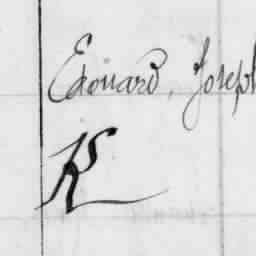 Edouard, Joseph